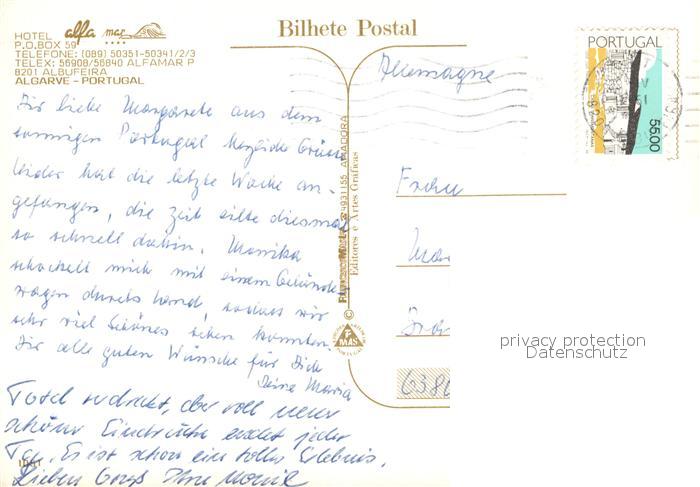 HOTEL alfa mar ****
P.O.BOX 59
TELEFONE: (089) 50351-50341/2/3
TELEX: 56908/56840 ALFAMAR P
8201 ALBUFEIRA
ALGARVE - PORTUGAL
Bilhete Postal
PORTUGAL
55.00
Allemagne
Dir liebe Margarete aus dem
sonnigen Portugal herzliche Grüsse
leider hat die letzte Woche an-
gefangen, die Zeit eilte diesmal
so schnell dahin. Monika
schockelt mich mit einem Gelände
wagen durchs Land, sodass wir
sehr viel Schönes sehen konnten.
Dir alle guten Wünsche für Dich
Deine Maria
Total verdreckt, aber voll neuer
schöner Eindrücke endet jeder
Tag. Es ist schon ein tolles Erlebnis.
Lieben Gruß Ihre Monik
Frau
Mar
638
AMADORA
Editores e Artes Gráficas
©
MAS
PORTUGAL
privacy protection
Datenschutz